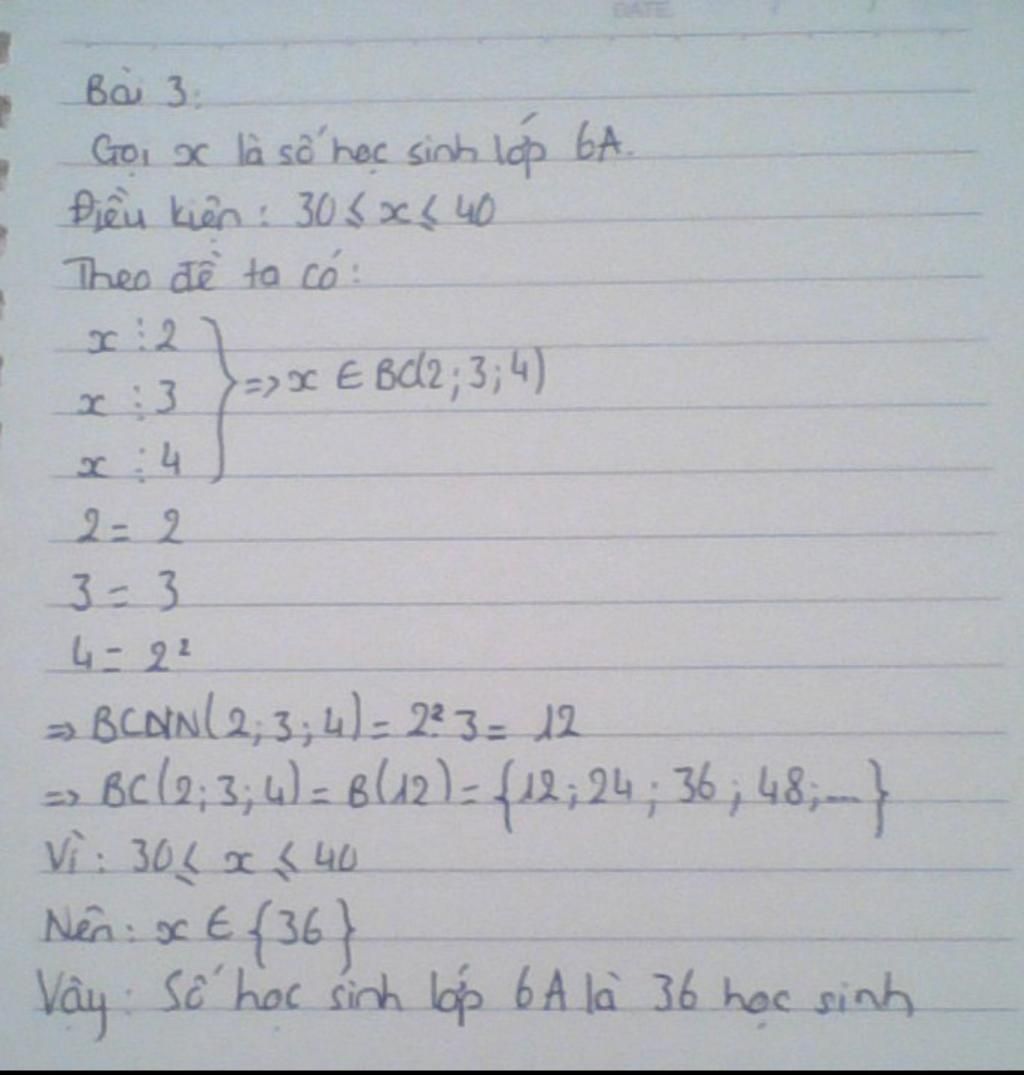 DATE
Bài 3:
Gọi x là số học sinh lớp 6A.
Điều kiện: 30 ≤ x ≤ 40
Theo đề ta có:
x ⋮ 2
x ⋮ 3 } => x ∈ BC(2; 3; 4)
x ⋮ 4
2 = 2
3 = 3
4 = 2²
=> BCNN(2; 3; 4) = 2². 3 = 12
=> BC(2; 3; 4) = B(12) = {12; 24; 36; 48; ...}
Vì: 30 ≤ x ≤ 40
Nên: x ∈ {36}
Vậy: Số học sinh lớp 6A là 36 học sinh